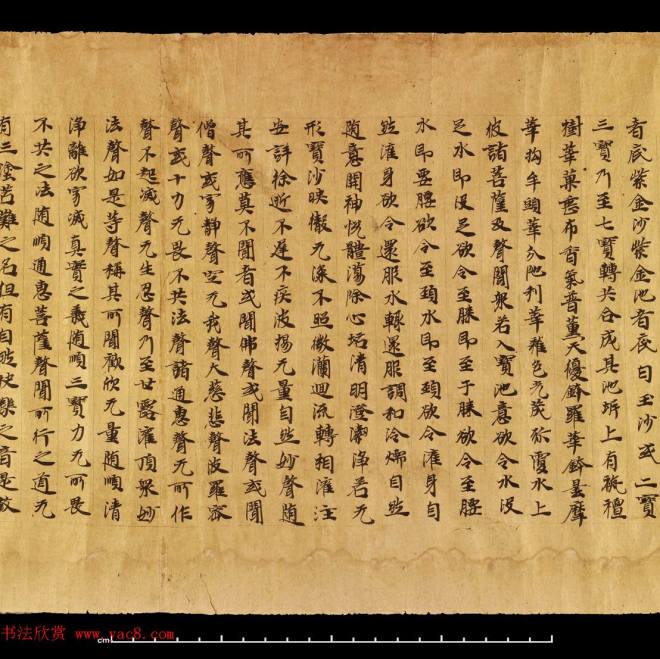 者底紫金沙紫金池者底白玉沙或二寶
三寶乃至七寶轉共合成其池岸上有栴檀
樹華菓垂布香氣普薰天優鉢羅華鉢曇摩
華拘牟頭華分陀利華雜色光茂弥覆水上
彼諸菩薩及聲聞衆若入寶池意欲令水没
足水即没足欲令至膝即至于膝欲令至腰
水即至腰欲令至頸水即至頸欲令灌身自
然灌身欲令還服水轉還服調和冷煖自然
随意開神悅體蕩除心垢清明澄潔净若无
形寶沙映徹无深不照微瀾迴流轉相灌注
安詳徐逝不遲不疾波揚无量自然妙聲随
其所應莫不聞者或聞佛聲或聞法聲或聞
僧聲或寂静聲空无我聲大慈悲聲波羅蜜
聲或十力无畏不共法聲諸通惠聲无所作
聲不起滅聲无生忍聲乃至甘露灌頂衆妙
法聲如是等聲稱其所聞歡欣无量随順清
净離欲寂滅真實之義随順三寶力无所畏
不共之法随順通惠菩薩聲聞所行之道无
有三塗苦難之名但有自然快樂之音是故
cm
书法欣赏 www.yac8.com